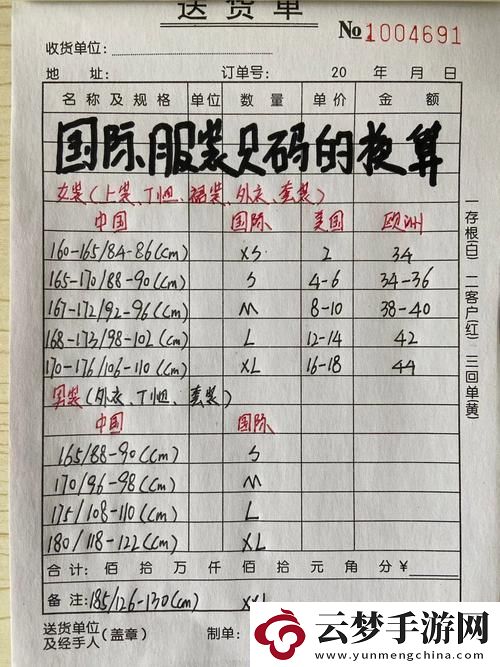 送货单
收货单位:
№1004691
地 址: 订单号: 20 年 月 日
名称及规格 单位 数量 单价 金额
国际服装尺码的换算
女装(上装、T恤、裙装、外衣、套装)
中国 国际 美国 欧洲
160-165/84-86(cm) XS 2 34
165-170/88-90(cm) S 4-6 34-36
167-172/92-96(cm) M 8-10 38-40
168-173/98-102(cm) L 12-14 42
170-176/106-110(cm) XL 16-18 44
男装(外衣、T恤、套装)
中国 国际
165/88-90(cm) S
170/96-98(cm) M
175/108-110(cm) L
180/118-122(cm) XL
合计: 佰 拾 万 仟 佰 拾 元 角 分¥
备注: 185/126-130(cm) XXL
送货单位
及经手人(盖章) 制单:
一存根(白) 二客户(红) 三回单(黄)
云梦手游网
www.yunmengchy.com